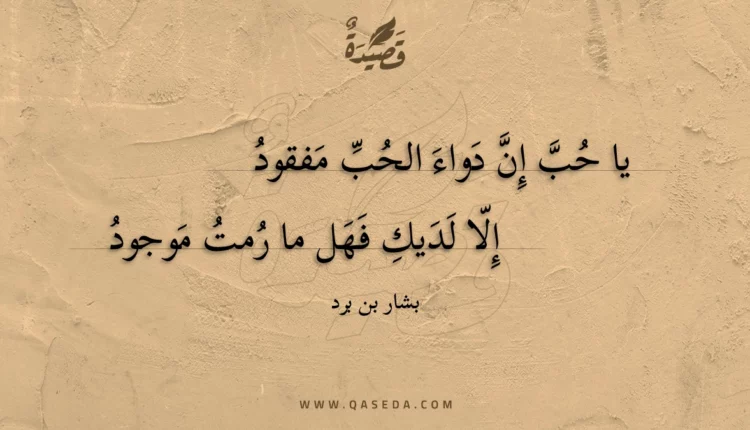 قَصِيْدَةٌ
يا حُبَّ إِنَّ دَواءَ الحُبِّ مَفقودُ
إِلّا لَدَيكِ فَهَل ما رُمتُ مَوجودُ
بشار بن برد
WWW.QASEDA.COM